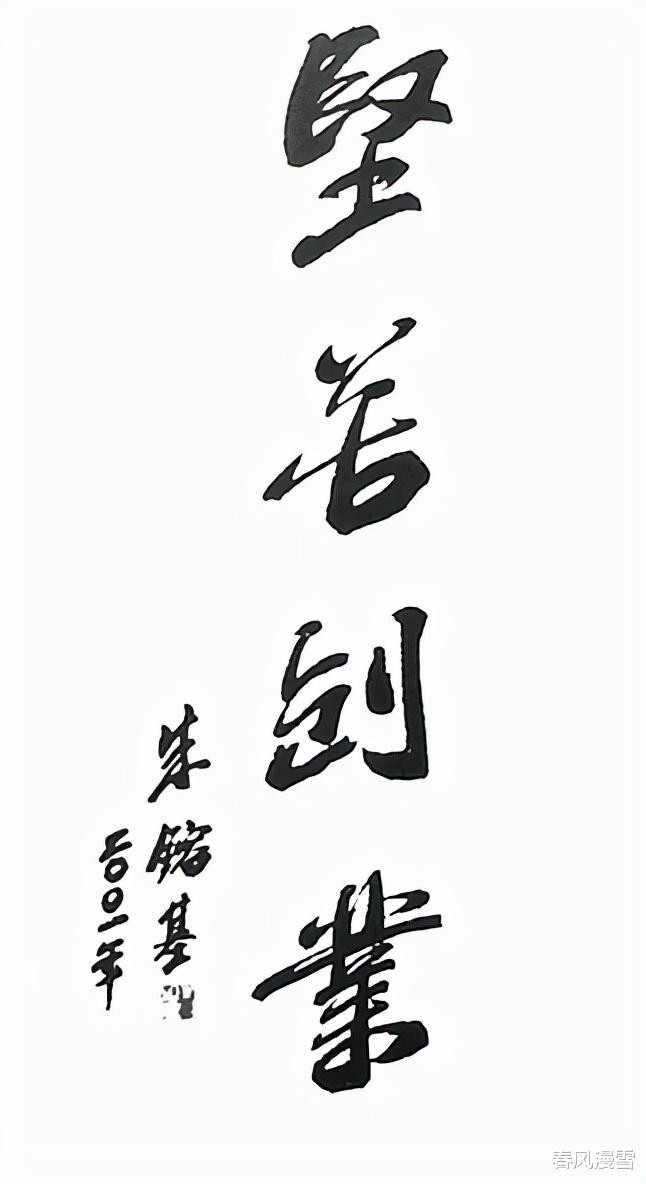 堅苦创業
朱鎔基
二〇〇一年
春风漫雪